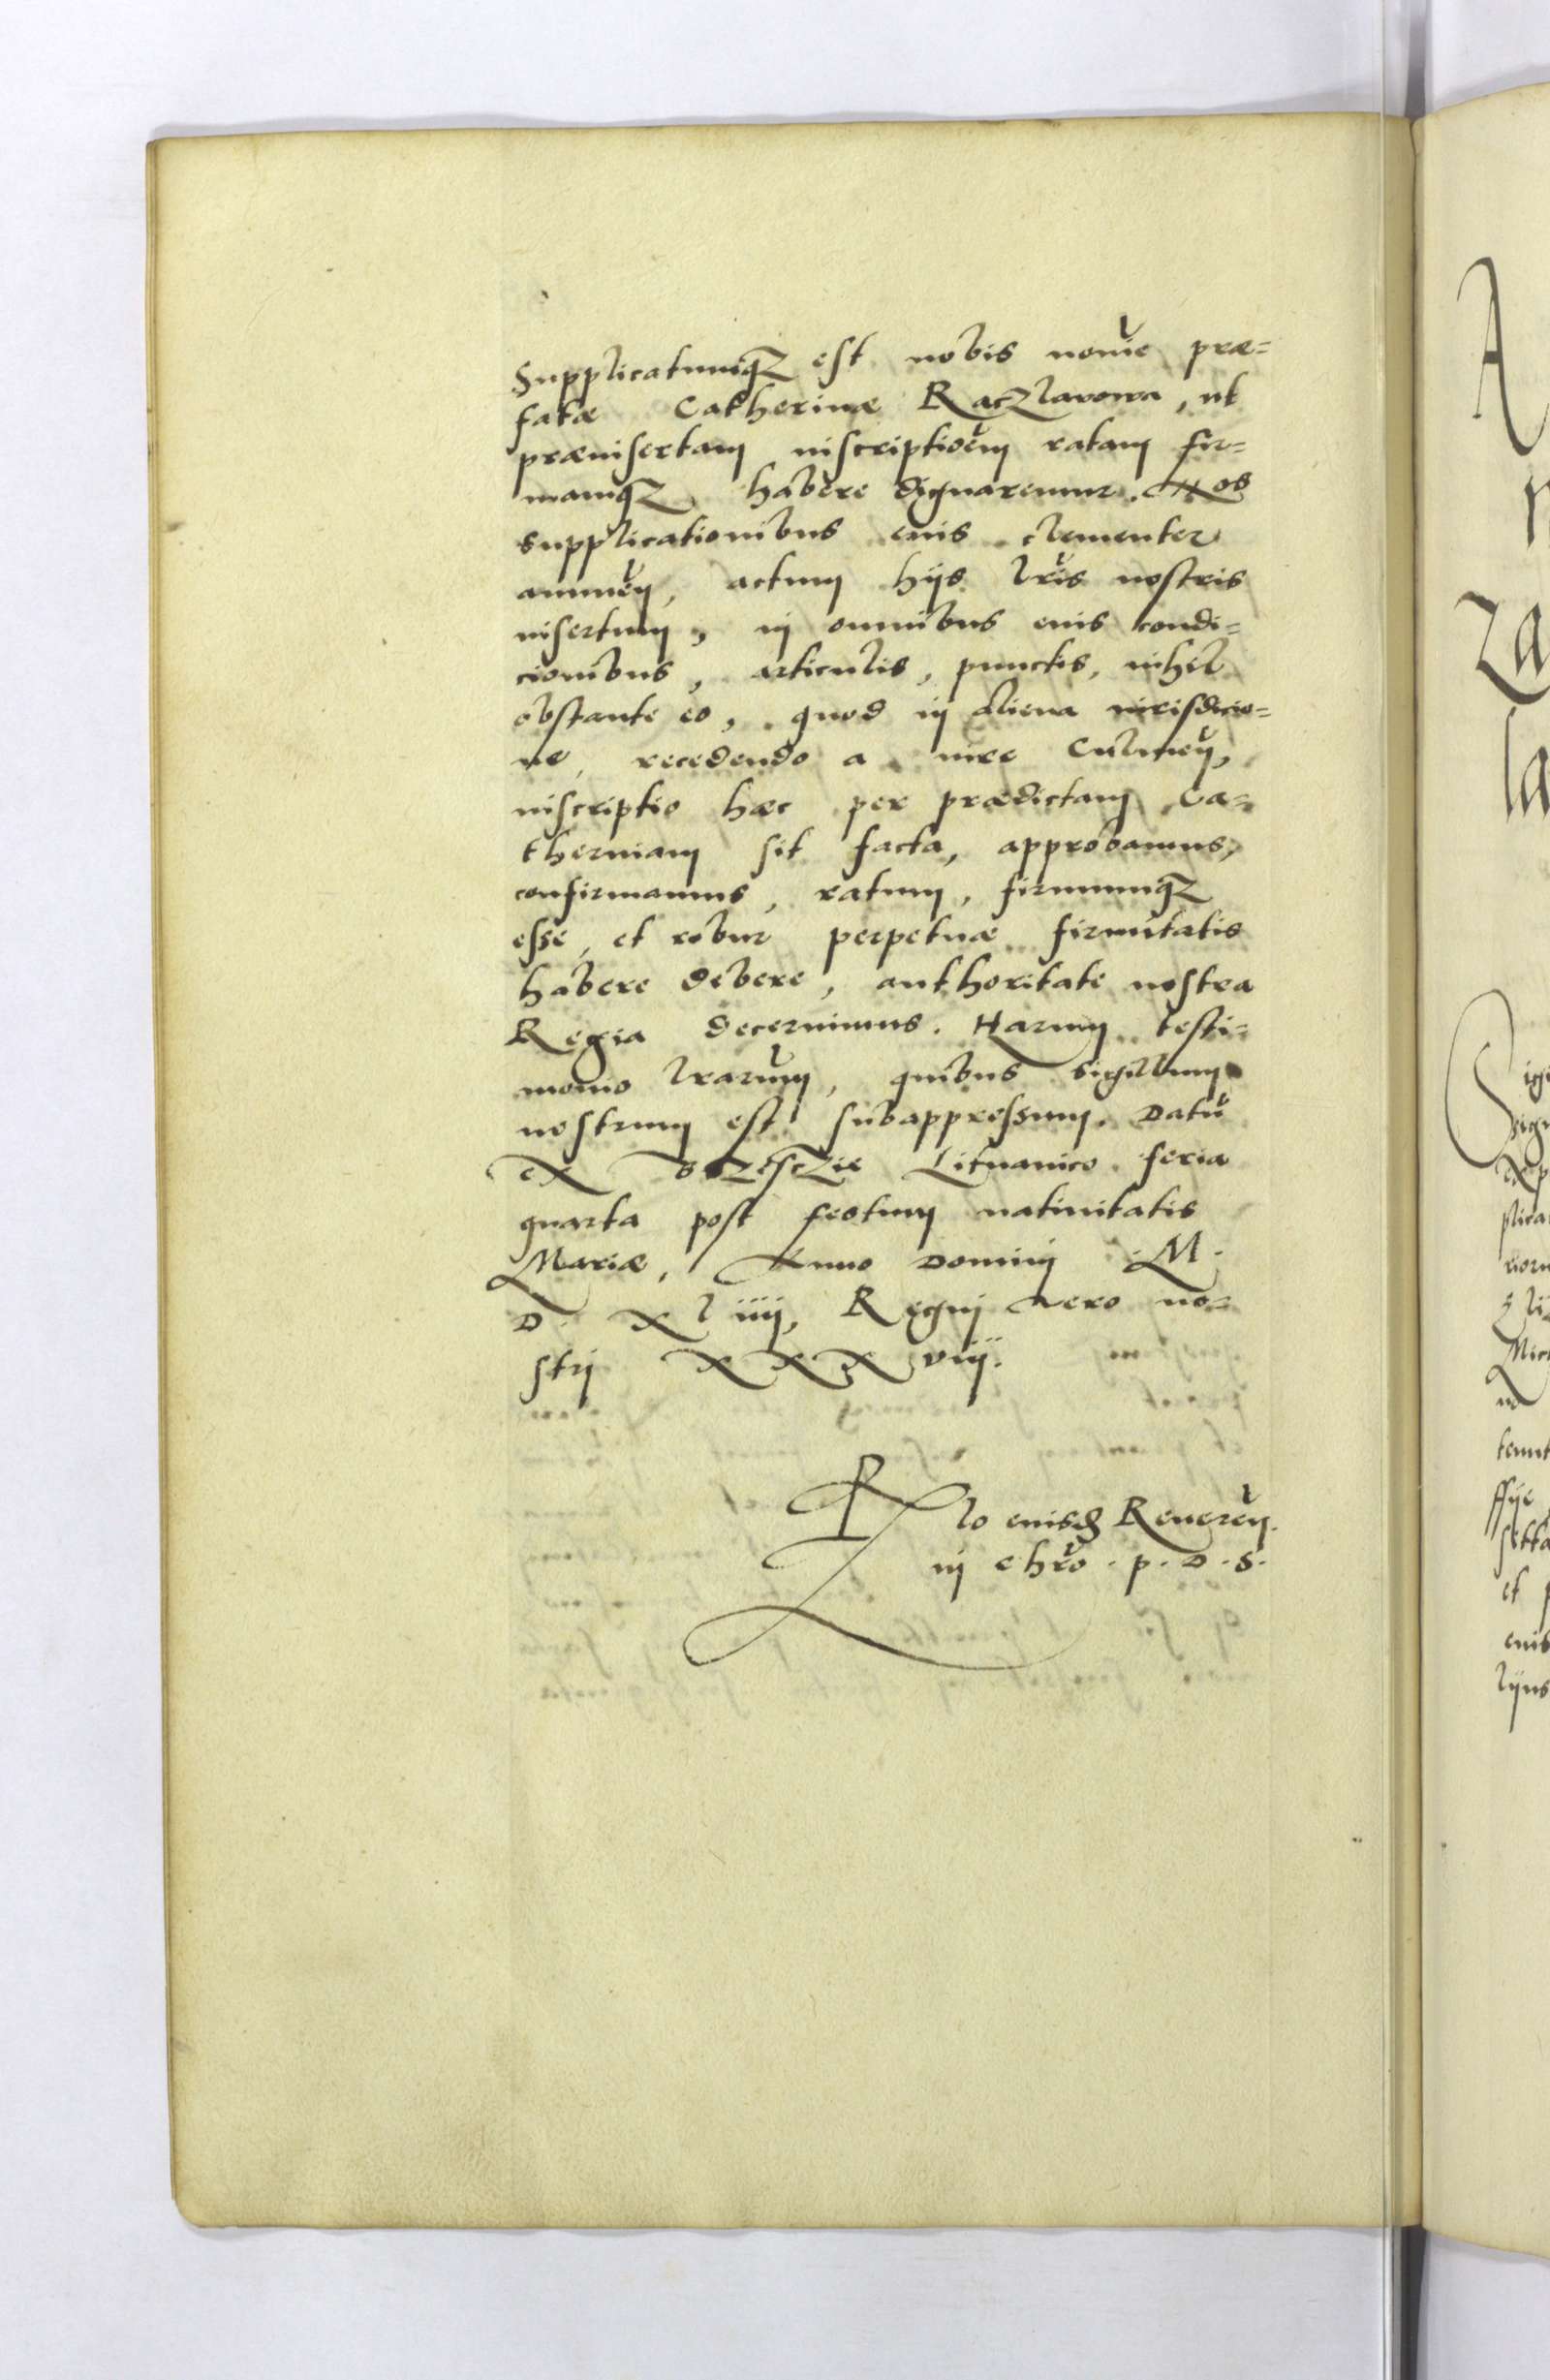 Supplicatumq₃ est nobis noīe præ=
fatæ Catherinæ Rączlavowa, ut
præinsertam inscriptioēm ratam fir=
mamq₃ habere dignaremur. Nos
supplicationibus eius clementer
annuēn, actum hijs lr̄is nostris
insertum, in omnibus eius condi=
cionibus, articulis, punctis, nihil
obstante eo, quod in aliena iurisdicio=
ne, recedendo a iure Culmeñ,
inscriptio hæc per prædictam Ca=
therinam sit facta, approbamus,
confirmamus, ratum, firmumq₃
esse, et robur perpetuæ firmitatis
habere debere, authoritate nostra
Regia decernimus. Harum testi=
monio lrarūm, quibus sigillum
nostrum est subappressum. Datū
ex Brzesczie Lituanico feria
quarta post festum natiuitatis
Mariæ, Anno Domini M.
D. xliiij, Regni vero no=
stri xxxviij.
Rlo eiusd Reuereñ.
in chr̄o. p. D. S.
A
za
la